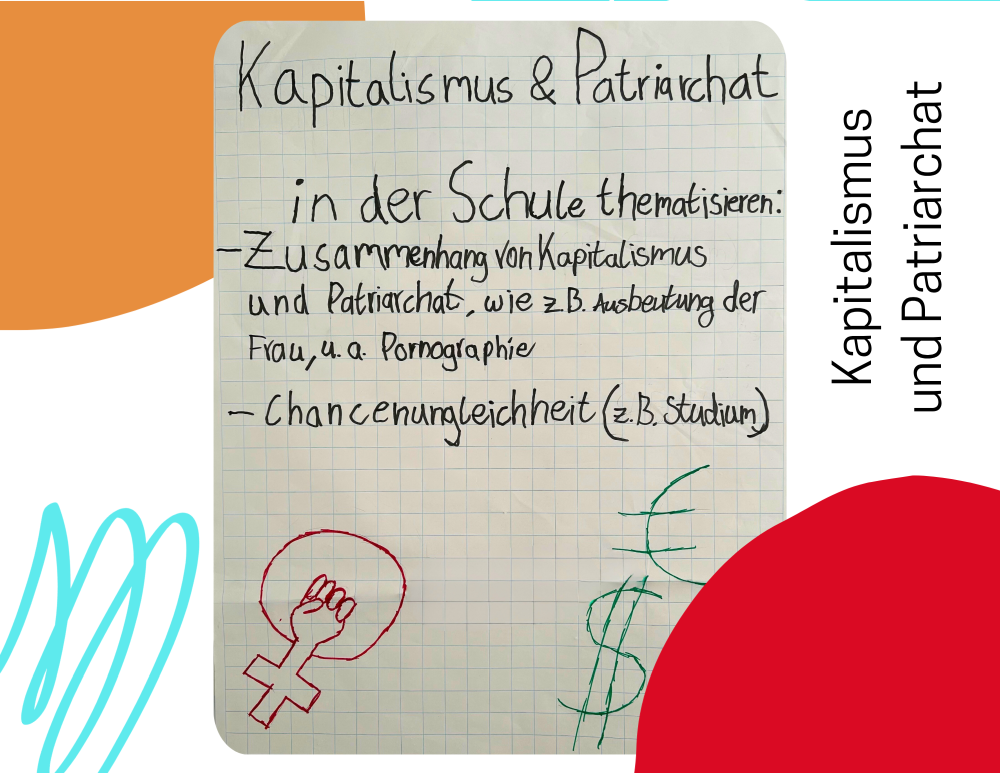 Kapitalismus & Patriarchat
in der Schule thematisieren:
– Zusammenhang von Kapitalismus
und Patriarchat, wie z.B. Ausbeutung der
Frau, u. a. Pornographie
– Chancenungleichheit (z.B. Studium)
€
$
Kapitalismus
und Patriarchat